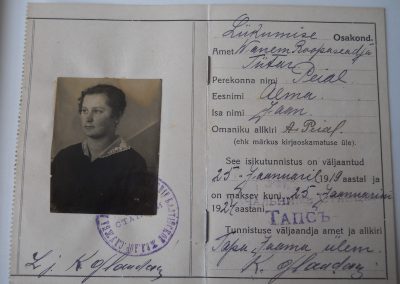 Liikumise Osakond.
Amet Wanem Roopaseadja
tütar
Perekonna nimi Peial
Eesnimi Alma
Isa nimi Jaan
Omaniku allkiri A. Peial.
(ehk märkus kirjaoskamatuse üle).
See isikutunnistus on väljaantud
25. Jaanuaril 1919 aastal ja
on maksev kuni 25. Jaanuarini
1924 aastani.
ТАПСЪ
Tunnistuse väljaandja amet ja allkiri
Tapa, Jaama ülem.